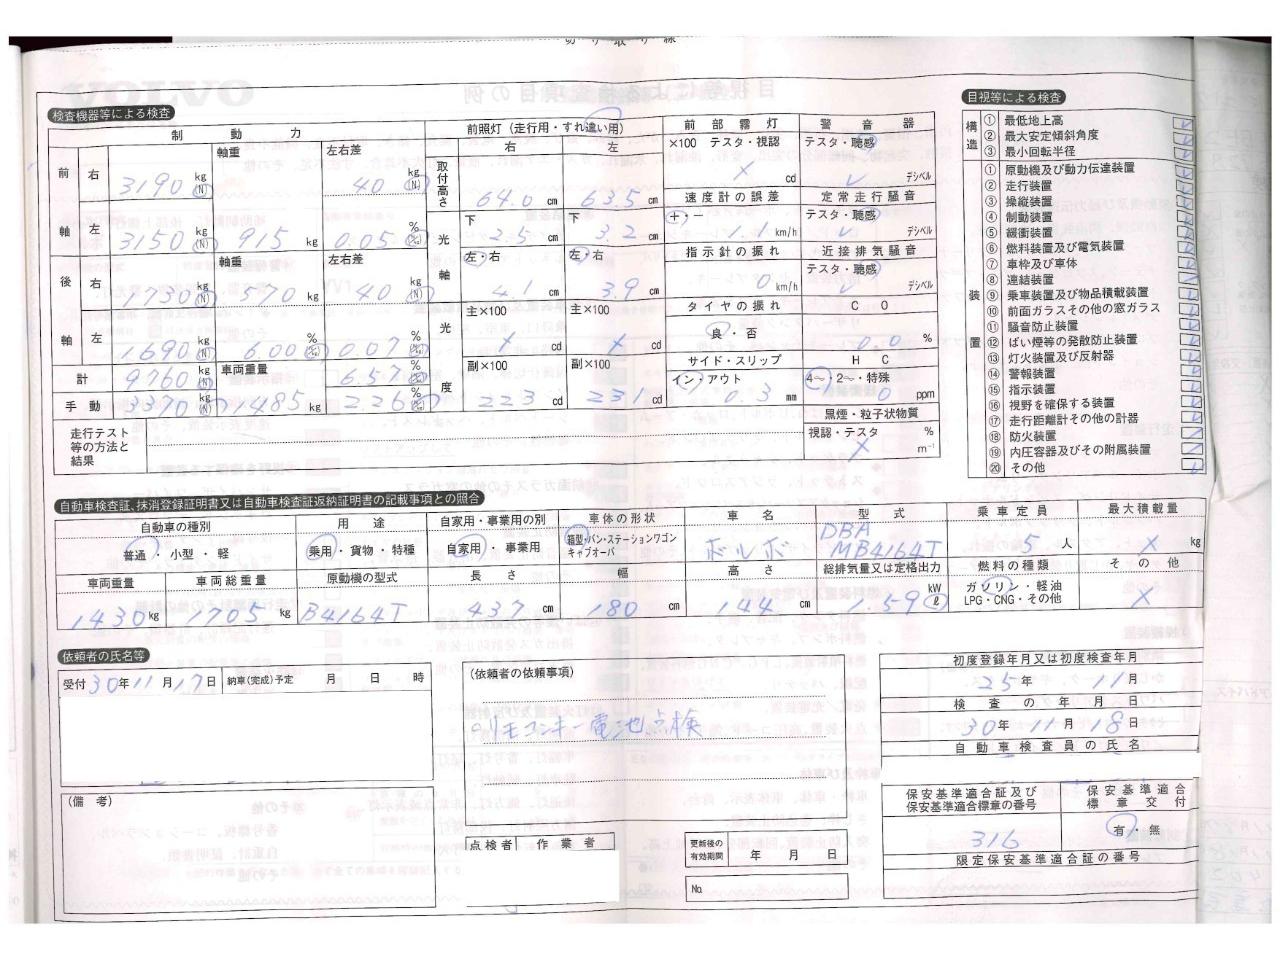 切り取り線
検査機器等による検査
制動力
前照灯（走行用・すれ違い用）
前部霧灯
警音器
前軸
右
3190 kg (N)
軸重
左右差
40 kg (N)
左
3150 kg (N)
915 kg
0.05 % N/kg
後軸
右
1730 kg (N)
軸重
570 kg
左右差
40 kg (N)
左
1690 kg (N)
6.00 % N/kg
0.07 % N/kg
計
9760 kg (N)
車両重量
6.57 % N/kg
手動
3370 kg (N)
1485 kg
2.26 % N/kg
走行テスト等の方法と結果
取付高さ
右
64.0 cm
左
63.5 cm
光軸
下
2.5 cm
下
3.2 cm
左・右
4.1 cm
左・右
3.9 cm
光度
主×100
× cd
主×100
× cd
副×100
223 cd
副×100
231 cd
×100 テスタ・視認
× cd
テスタ・聴感
レ デシベル
速度計の誤差
定常走行騒音
＋・－
1.1 km/h
テスタ・聴感
レ デシベル
指示計の振れ
近接排気騒音
0 km/h
テスタ・聴感
レ デシベル
タイヤの振れ
CO
良・否
0.0 %
サイド・スリップ
HC
イン・アウト
0.3 mm
4～・2～・特殊
0 ppm
黒煙・粒子状物質
視認・テスタ
× % m⁻¹
目視等による検査
構造
① 最低地上高
② 最大安定傾斜角度
③ 最小回転半径
装置
① 原動機及び動力伝達装置
② 走行装置
③ 操縦装置
④ 制動装置
⑤ 緩衝装置
⑥ 燃料装置及び電気装置
⑦ 車枠及び車体
⑧ 連結装置
⑨ 乗車装置及び物品積載装置
⑩ 前面ガラスその他の窓ガラス
⑪ 騒音防止装置
⑫ ばい煙等の発散防止装置
⑬ 灯火装置及び反射器
⑭ 警報装置
⑮ 指示装置
⑯ 視野を確保する装置
⑰ 走行距離計その他の計器
⑱ 防火装置
⑲ 内圧容器及びその附属装置
⑳ その他
自動車検査証、抹消登録証明書又は自動車検査証返納証明書の記載事項との照合
自動車の種別
用途
自家用・事業用の別
車体の形状
車名
型式
乗車定員
最大積載量
普通・小型・軽
乗用・貨物・特種
自家用・事業用
箱型・バン・ステーションワゴン
キャブオーバ
ボルボ
DBA
MB4164T
5 人
× kg
車両重量
車両総重量
原動機の型式
長さ
幅
高さ
総排気量又は定格出力
燃料の種類
その他
1430 kg
1705 kg
B4164T
437 cm
180 cm
144 cm
1.59 kW ℓ
ガソリン・軽油
LPG・CNG・その他
×
依頼者の氏名等
受付 30年 11月 17日
納車（完成）予定 月 日 時
（備考）
（依頼者の依頼事項）
リモコンキー電池点検
点検者
作業者
更新後の有効期間
年 月 日
No.
初度登録年月又は初度検査年月
25年 11月
検査の年月日
30年 11月 18日
自動車検査員の氏名
保安基準適合証及び
保安基準適合標章の番号
保安基準適合
標章交付
316
有・無
限定保安基準適合証の番号